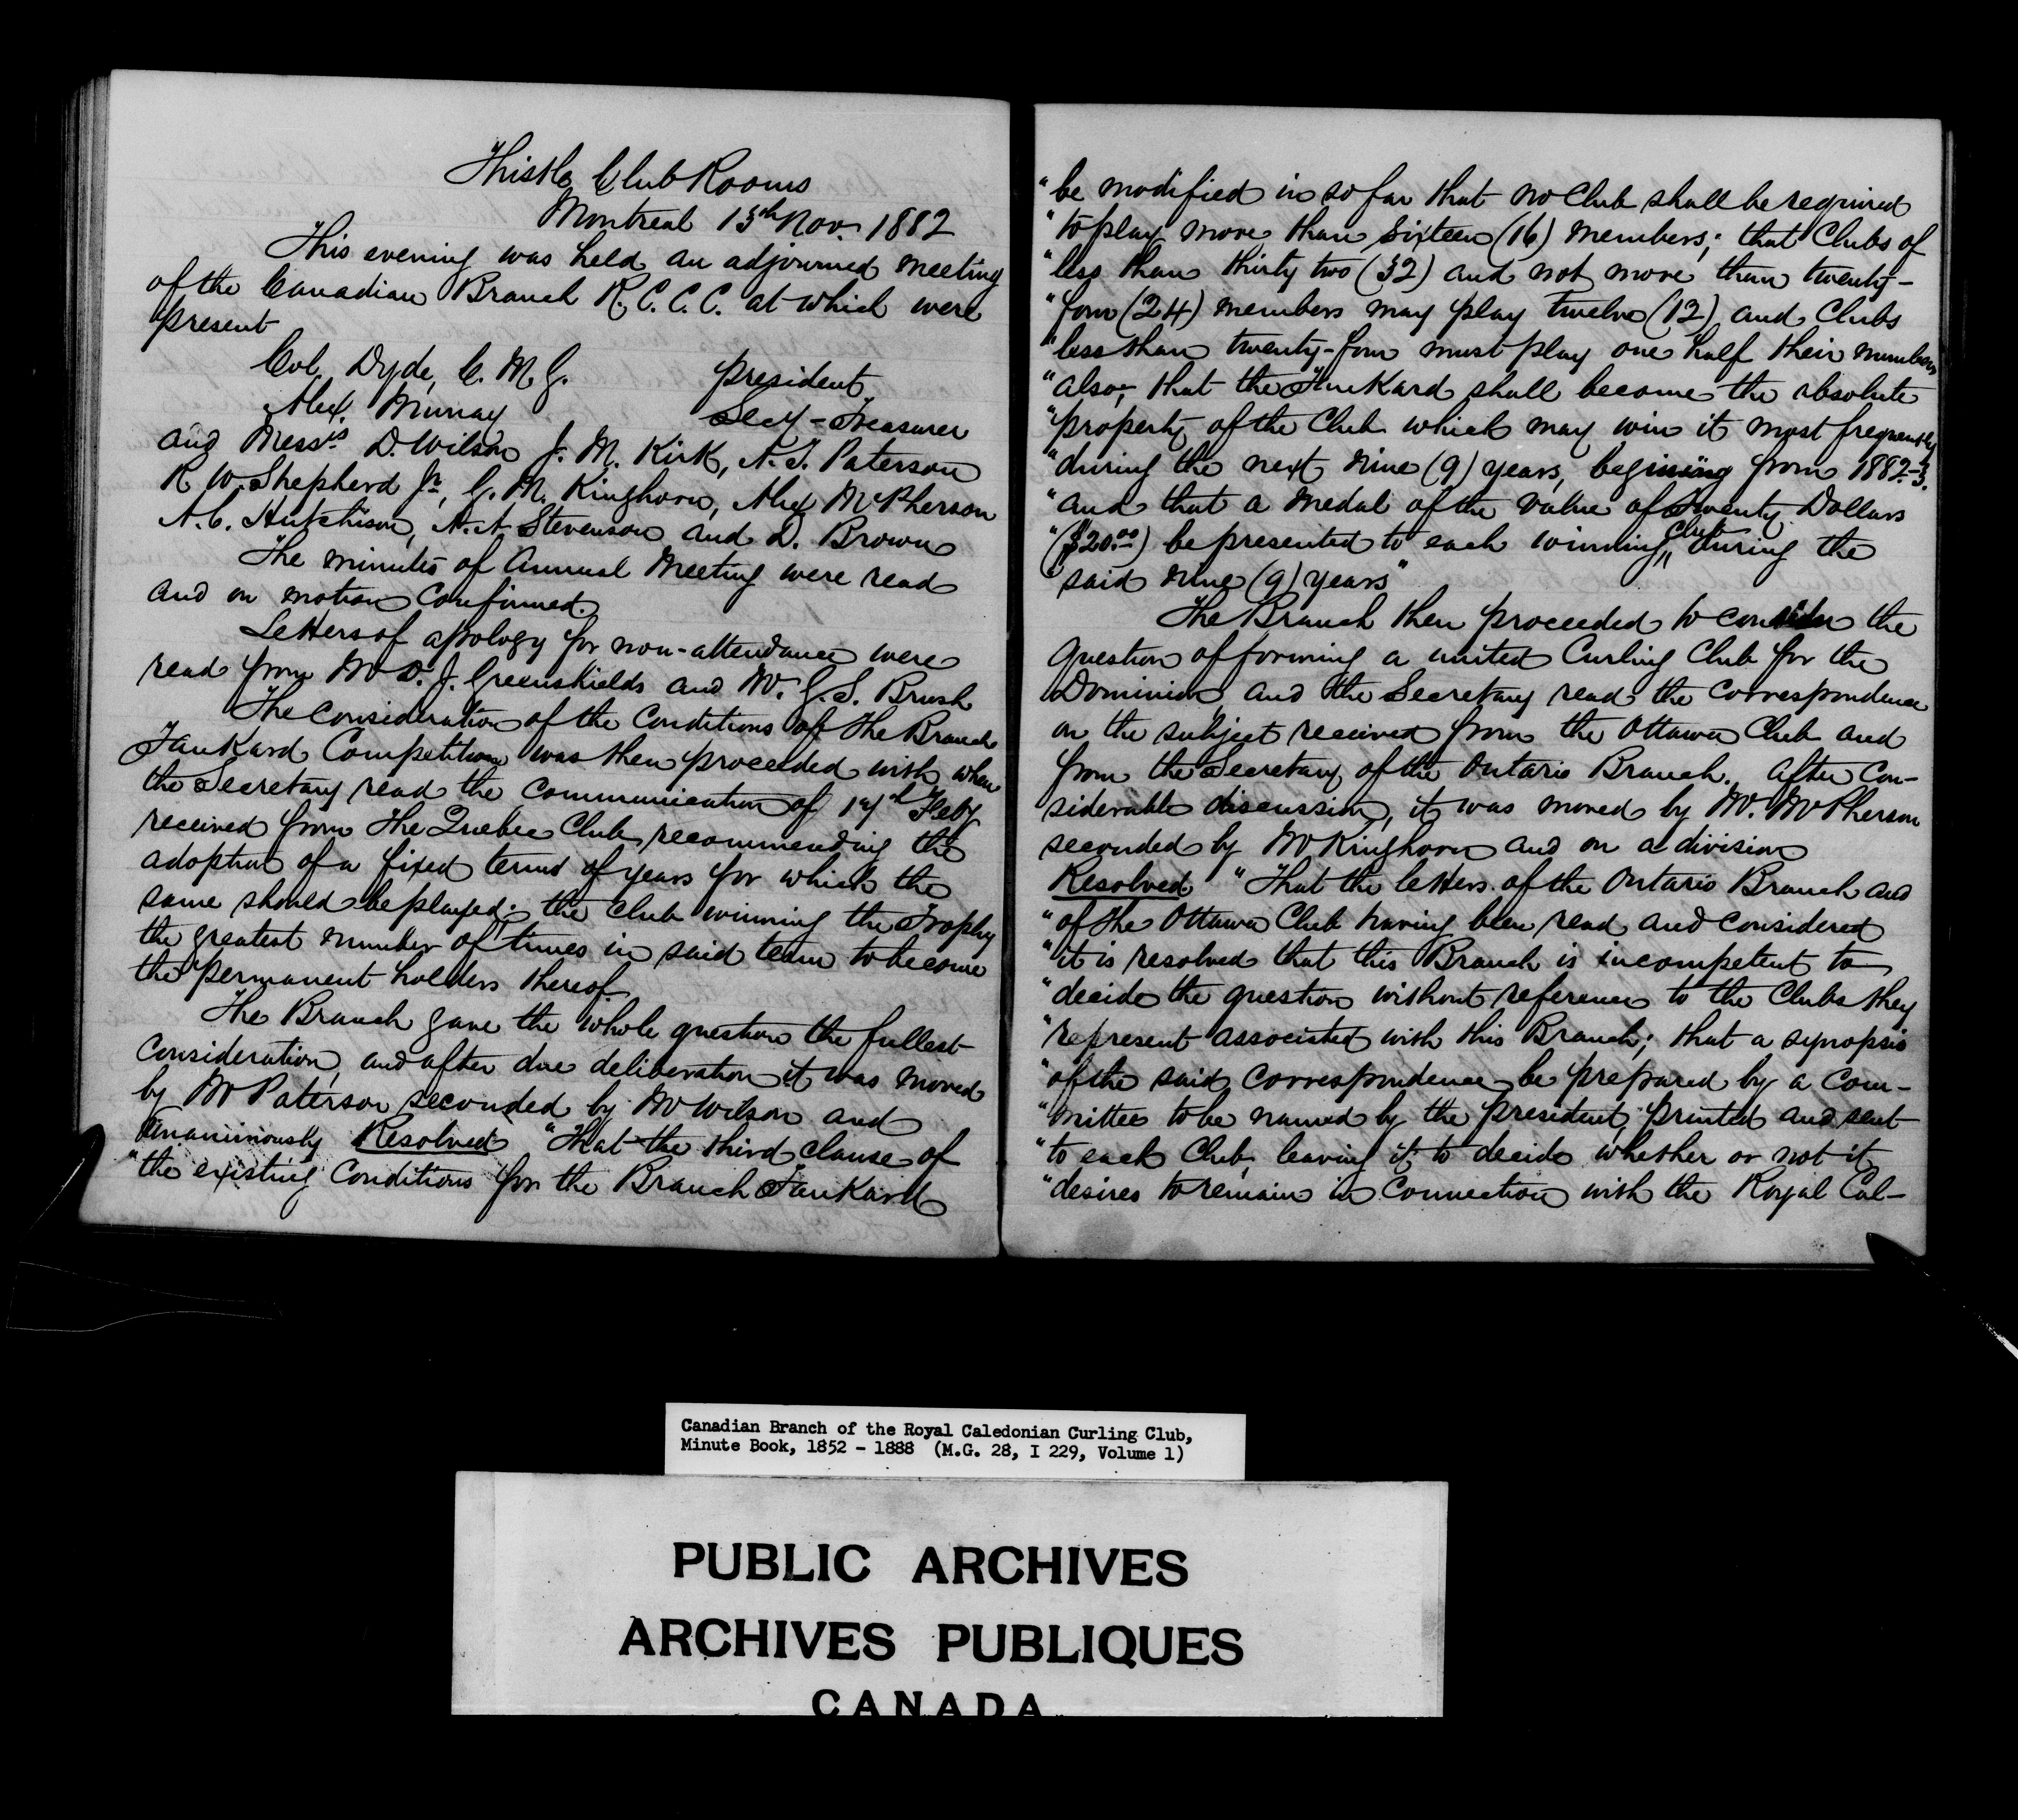 Thistle Club Rooms
Montreal 13th Nov. 1882
This evening was held an adjourned meeting
of the Canadian Branch R. C. C. C. at which were
present
Col. Dyde, C. M. G. President
Alex. Murray Secy - Treasurer
and Messrs. D. Wilson J. M. Kirk, A. T. Paterson
R. W. Shepherd Jr, G. M. Kinghorn, Alex McPherson
A. C. Hutchison, A. A Stevenson and D. Brown
The minutes of Annual Meeting were read
and on motion Confirmed.
Letters of apology for non-attendance were
read from Mr D. J. Greenshields and Mr. G. S. Brush
The Consideration of the Conditions of the Branch
Tankard Competition was then proceeded with when
the Secretary read the Communication of 17th Feby
received from the Quebec Club, recommending the
adoption of a fixed term of years for which the
same should be played; the Club winning the Trophy
the greatest number of times in said term to become
the permanent holders thereof.
The Branch gave the whole question the fullest
Consideration, and after due deliberation it was moved
by Mr Paterson seconded by Mr Wilson and
Unanimously Resolved "That the third clause of
"the existing Conditions for the Branch Tankard
"be modified in so far that no Club shall be required
"to play more than Sixteen (16) members; that Clubs of
"less than thirty two (32) and not more than twenty-
"four (24) members may play twelve (12) and Clubs
"less than twenty-four must play one half their members
"also; that the Tankard shall become the absolute
"property of the Club which may win it most frequently
"during the next nine (9) years, begining from 1882-3.
"and that a medal of the value of Twenty Dollars
"($20.00) be presented to each winning Club during the
"said nine (9) years"
The Branch then proceeded to consider the
question of forming a united Curling Club for the
Dominion, and the Secretary read the correspondence
on the subject received from the Ottawa Club and
from the Secretary of the Ontario Branch. After Con-
siderable discussion, it was moved by Mr. McPherson
seconded by Mr Kinghorn and on a division
Resolved "That the letters of the Ontario Branch and
"of the Ottawa Club having been read and considered
"it is resolved that this Branch is incompetent to
"decide the question without reference to the Clubs they
"represent associated with this Branch; that a synopsis
"of the said correspondence be prepared by a Com-
"mittee to be named by the President, printed and sent
"to each Club, leaving it to decide whether or not it
"desires to remain in Connection with the Royal Cal-
Canadian Branch of the Royal Caledonian Curling Club,
Minute Book, 1852 - 1888 (M.G. 28, I 229, Volume 1)
PUBLIC ARCHIVES
ARCHIVES PUBLIQUES
CANADA